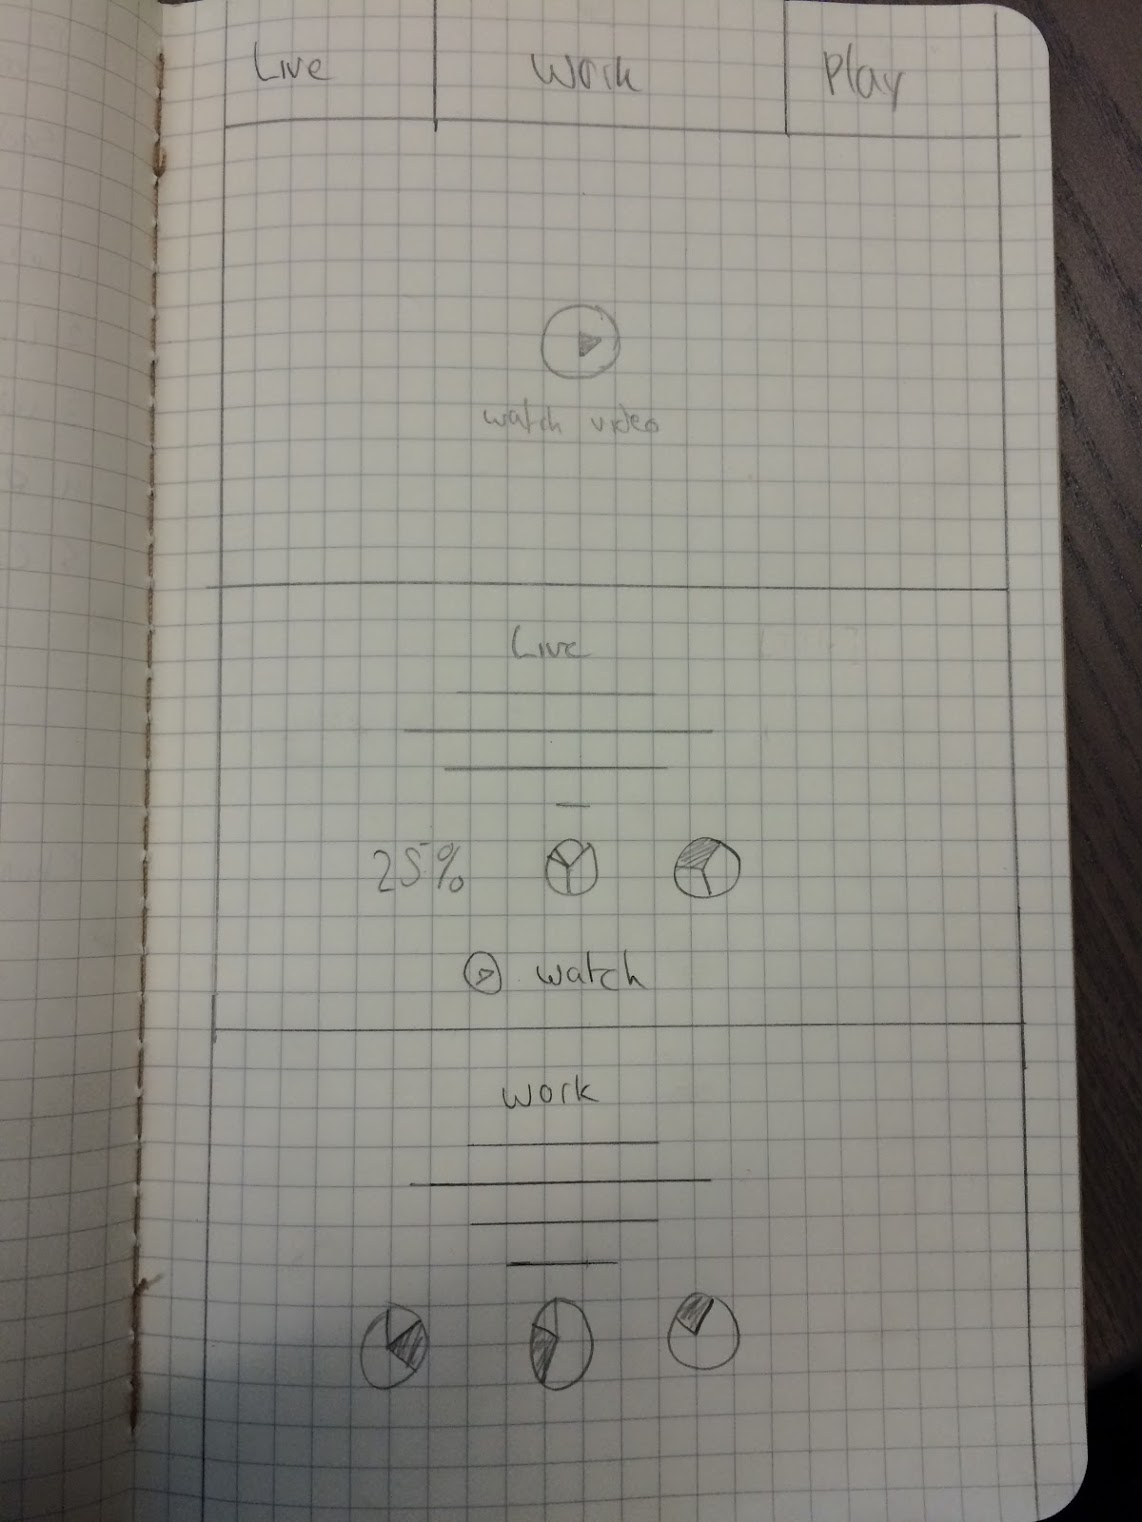 Live Work Play
watch video
Live
25%
watch
Work